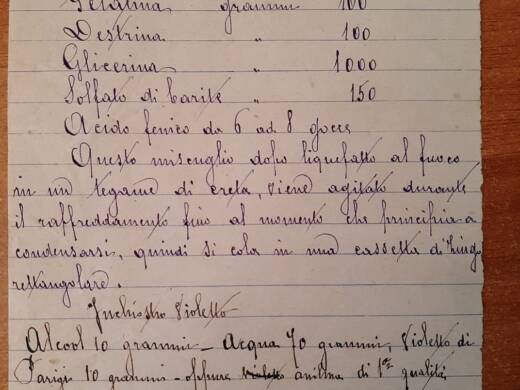 Gelatina grammi 100
Destrina " 100
Glicerina " 1000
Solfato di barite " 150
Acido fenico da 6 ad 8 gocce
Questo miscuglio dopo liquefatto al fuoco
in un tegame di creta, viene agitato durante
il raffreddamento fino al momento che principia a
condensarsi, quindi si cola in una cassetta di zingo
rettangolare.
Inchiostro violetto
Alcool 10 grammi - Acqua 70 grammi, Violetto di
Parigi 10 grammi - oppure anilina di 1ª qualità